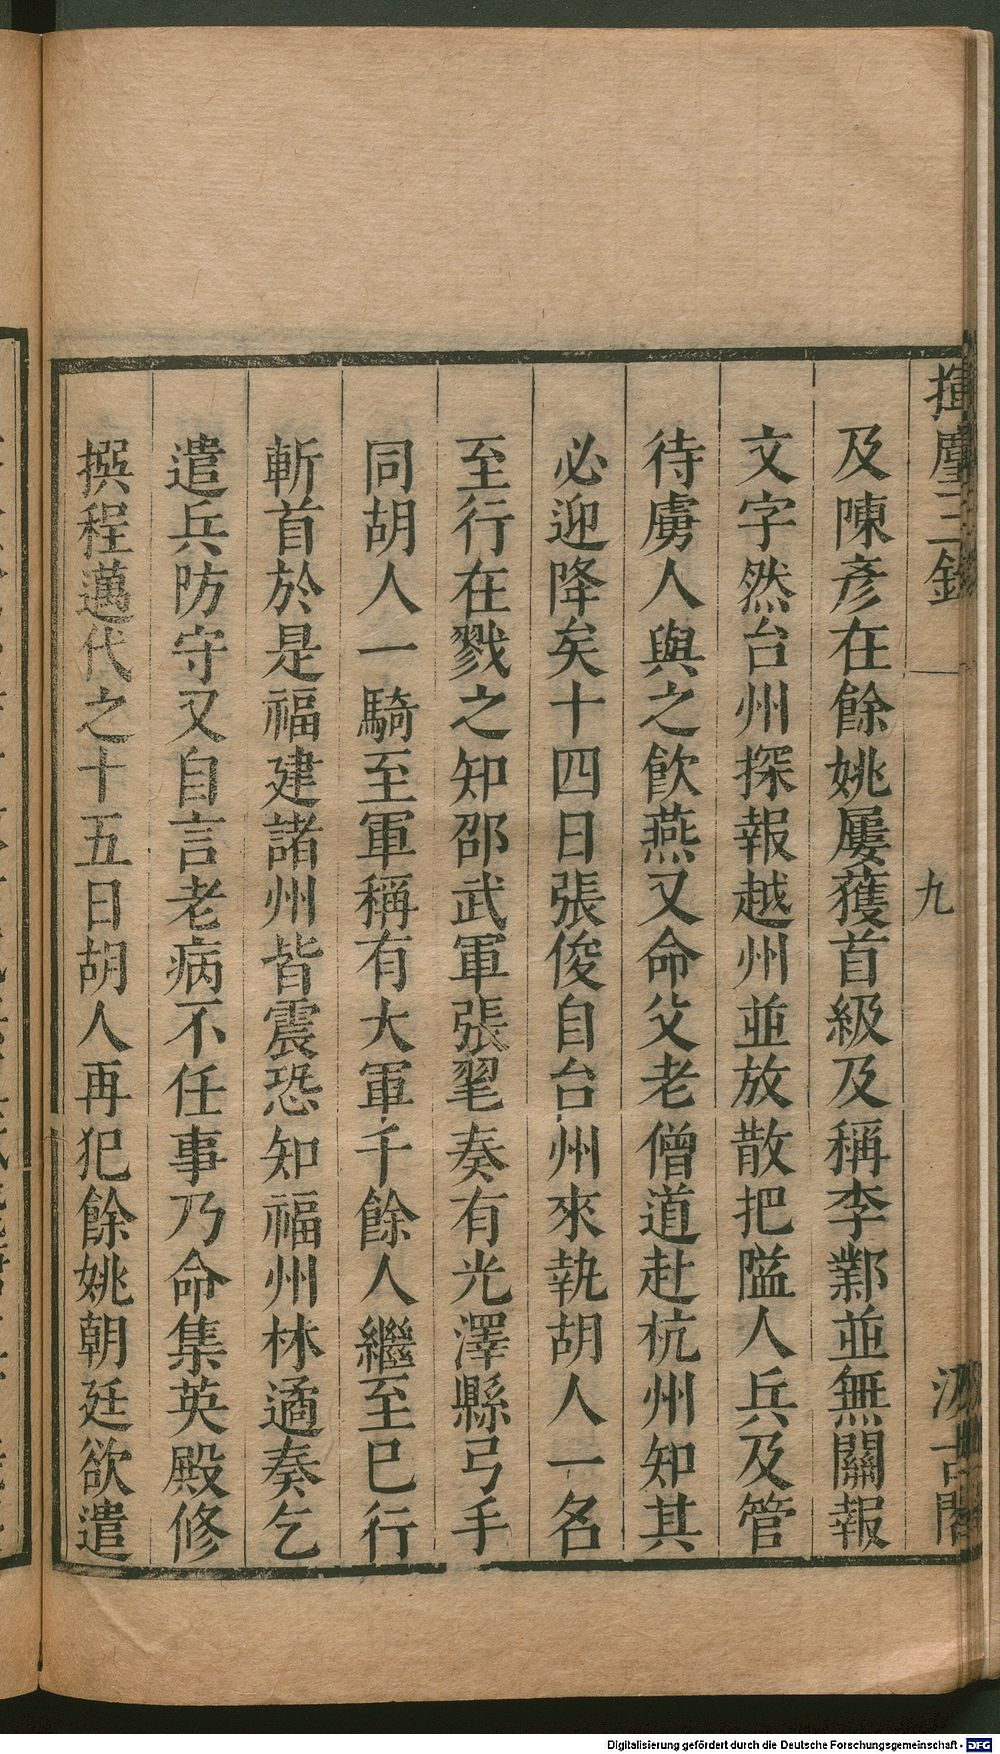 揮麈三錄
九
汲古閣
及陳彥在餘姚屢獲首級及稱李鄴並無關報
文字然台州探報越州並放散把隘人兵及管
待虜人與之飮燕又命父老僧道赴杭州知其
必迎降矣十四日張俊自台州來執胡人一名
至行在戮之知邵武軍張毣奏有光澤縣弓手
同胡人一騎至軍稱有大軍千餘人繼至巳行
斬首於是福建諸州皆震恐知福州林遹奏乞
遣兵防守又自言老病不任事乃命集英殿修
撰程邁代之十五日胡人再犯餘姚朝廷欲遣
Digitalisierung gefördert durch die Deutsche Forschungsgemeinschaft - DFG